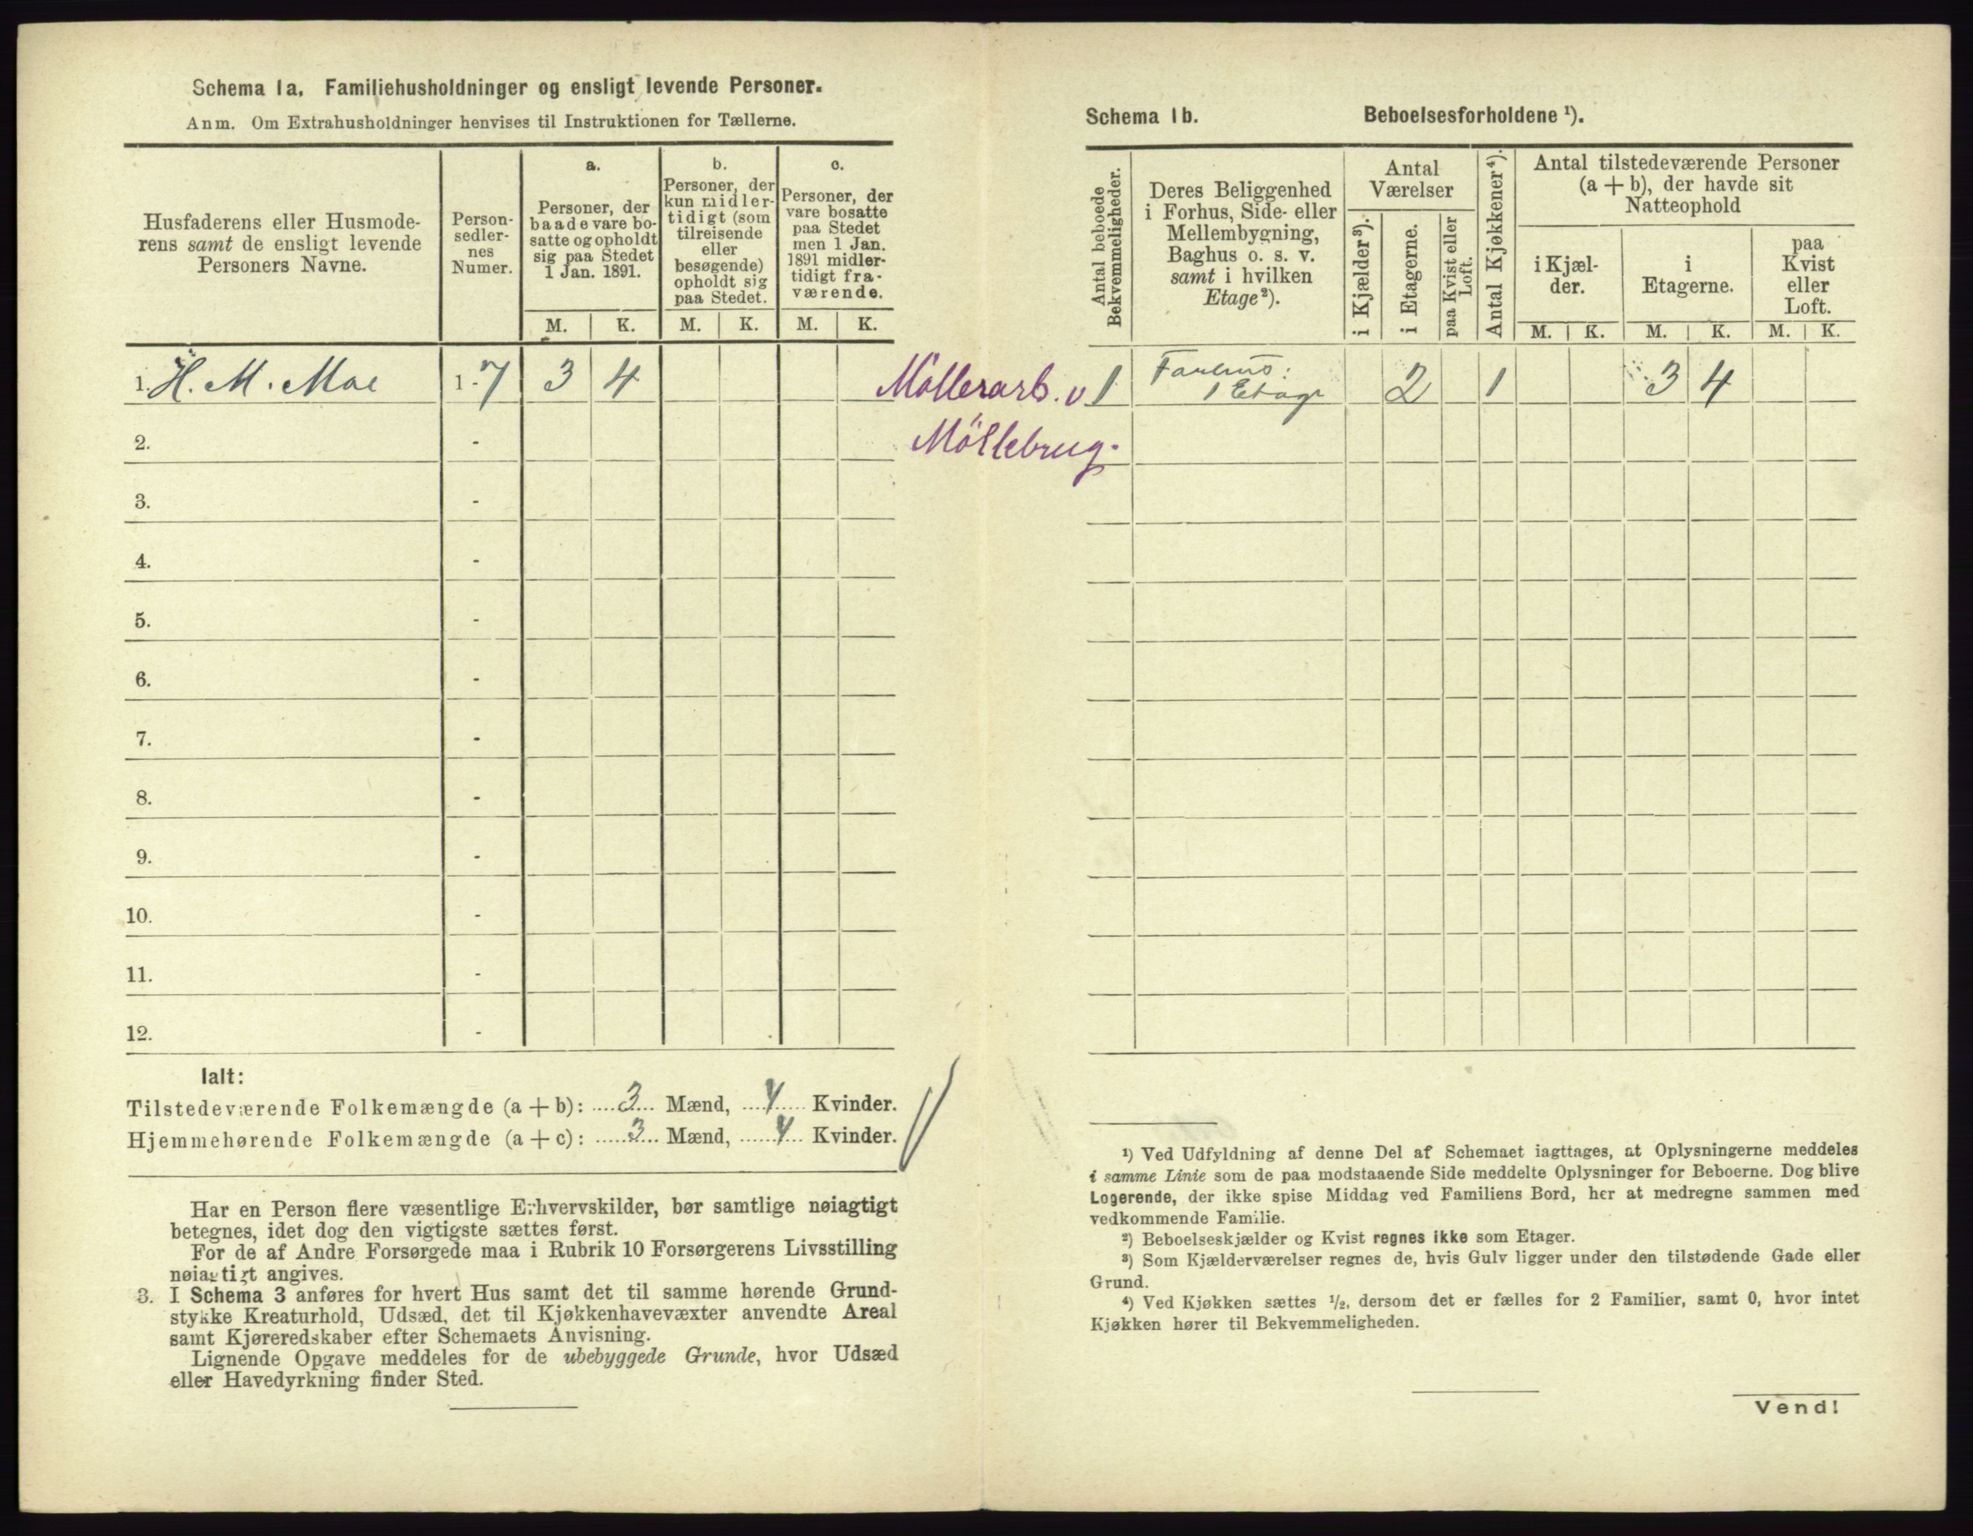 Schema 1a. Familiehusholdninger og ensligt levende Personer.
Anm. Om Extrahusholdninger henvises til Instruktionen for Tællerne.
Husfaderens eller Husmode-
rens samt de ensligt levende
Personers Navne.
Person-
sedler-
nes
Numer.
a.
Personer, der
baade vare bo-
satte og opholdt
sig paa Stedet
1 Jan. 1891.
b.
Personer, der
kun midler-
tidigt (som
tilreisende
eller
besøgende)
opholdt sig
paa Stedet.
c.
Personer, der
vare bosatte
paa Stedet
men 1 Jan.
1891 midler-
tidigt fra-
værende.
M. K. M. K. M. K.
1. H. M. Moe 1 - 7 3 4
2. -
3. -
4. -
5. -
6. -
7. -
8. -
9. -
10. -
11. -
12. -
Ialt:
Tilstedeværende Folkemængde (a + b): 3 Mænd, 4 Kvinder.
Hjemmehørende Folkemængde (a + c): 3 Mænd, 4 Kvinder.
Har en Person flere væsentlige Erhvervskilder, bør samtlige nøiagtigt
betegnes, idet dog den vigtigste sættes først.
For de af Andre Forsørgede maa i Rubrik 10 Forsørgerens Livsstilling
nøiagtigt angives.
3. I Schema 3 anføres for hvert Hus samt det til samme hørende Grund-
stykke Kreaturhold, Udsæd, det til Kjøkkenhavevæxter anvendte Areal
samt Kjøreredskaber efter Schemaets Anvisning.
Lignende Opgave meddeles for de ubebyggede Grunde, hvor Udsæd
eller Havedyrkning finder Sted.
Möllerarb. v
Möllebrug.
Schema 1b. Beboelsesforholdene ¹).
Antal beboede
Bekvemmeligheder.
Deres Beliggenhed
i Forhus, Side- eller
Mellembygning,
Baghus o. s. v.
samt i hvilken
Etage²).
Antal
Værelser
i Kjælder³).
i Etagerne.
paa Kvist eller
Loft.
Antal Kjøkkener⁴).
Antal tilstedeværende Personer
(a + b), der havde sit
Natteophold
i Kjæl-
der.
i
Etagerne.
paa
Kvist
eller
Loft.
M. K. M. K. M. K.
1 Forhus:
1 Etage 2 1 3 4
¹) Ved Udfyldning af denne Del af Schemaet iagttages, at Oplysningerne meddeles
i samme Linie som de paa modstaaende Side meddelte Oplysninger for Beboerne. Dog blive
Logerende, der ikke spise Middag ved Familiens Bord, her at medregne sammen med
vedkommende Familie.
²) Beboelseskjælder og Kvist regnes ikke som Etager.
³) Som Kjælderværelser regnes de, hvis Gulv ligger under den tilstødende Gade eller
Grund.
⁴) Ved Kjøkken sættes ½, dersom det er fælles for 2 Familier, samt 0, hvor intet
Kjøkken hører til Bekvemmeligheden.
Vend!